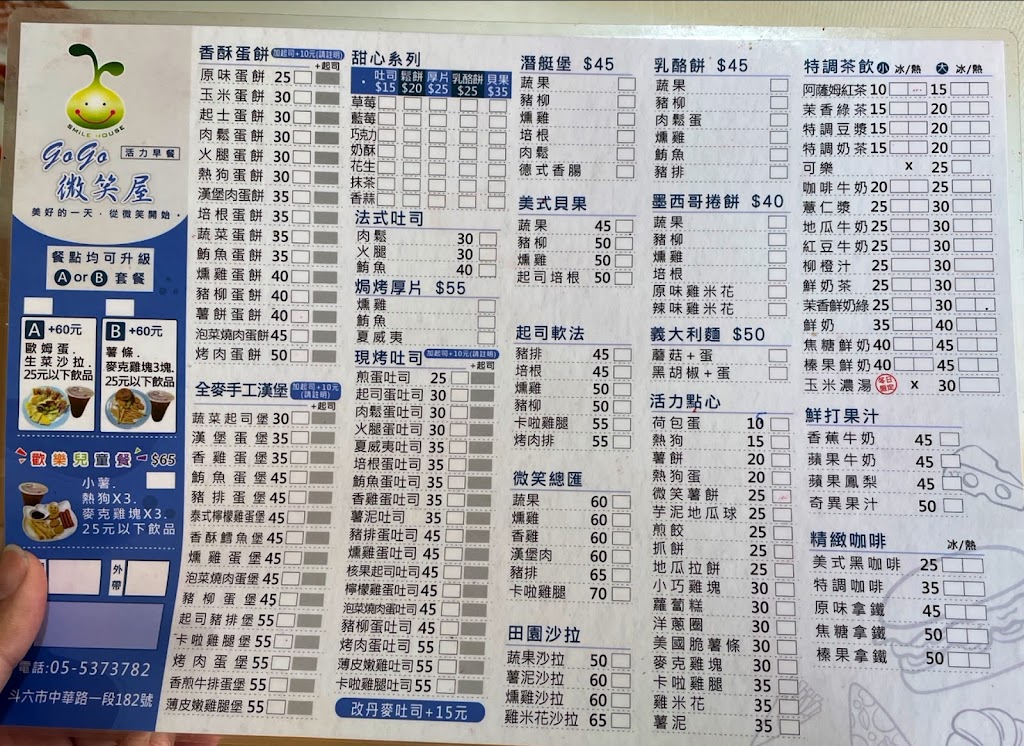 SMILE HOUSE
GoGo 活力早餐
微笑屋
美好的一天.從微笑開始.
餐點均可升級
A or B 套餐
A +60元
歐姆蛋.
生菜沙拉.
25元以下飲品
B +60元
薯條.
麥克雞塊3塊.
25元以下飲品
歡樂兒童餐 $65
小薯.
熱狗X3.
麥克雞塊X3.
25元以下飲品
外帶
電話:05-5373782
斗六市中華路一段182號
香酥蛋餅 加起司+10元(請註明)
+起司
原味蛋餅 25
玉米蛋餅 30
起士蛋餅 30
肉鬆蛋餅 30
火腿蛋餅 30
熱狗蛋餅 30
漢堡肉蛋餅 35
培根蛋餅 35
蔬菜蛋餅 35
鮪魚蛋餅 35
燻雞蛋餅 40
豬柳蛋餅 40
薯餅蛋餅 40
泡菜燒肉蛋餅 45
烤肉蛋餅 50
全麥手工漢堡 加起司+10元(請註明)
+起司
蔬菜起司堡 30
漢堡蛋堡 35
香雞蛋堡 35
鮪魚蛋堡 45
豬排蛋堡 45
泰式檸檬雞蛋堡 45
香酥鱈魚堡 45
燻雞蛋堡 45
泡菜燒肉蛋堡 45
豬柳蛋堡 45
起司豬排堡 55
卡啦雞腿堡 55
烤肉蛋堡 55
香煎牛排蛋堡 55
薄皮嫩雞腿堡 55
甜心系列
吐司 $15 鬆餅 $20 厚片 $25 乳酪餅 $25 貝果 $35
草莓
藍莓
巧克力
奶酥
花生
抹茶
香蒜
法式吐司
肉鬆 30
火腿 30
鮪魚 40
焗烤厚片 $55
燻雞
鮪魚
夏威夷
現烤吐司 加起司+10元(請註明)
+起司
煎蛋吐司 25
起司蛋吐司 30
肉鬆蛋吐司 30
火腿蛋吐司 30
夏威夷吐司 35
培根蛋吐司 35
鮪魚蛋吐司 35
香雞蛋吐司 35
薯泥吐司 35
豬排蛋吐司 40
燻雞蛋吐司 40
核果起司吐司 45
檸檬雞蛋吐司 45
泡菜燒肉蛋吐司 45
豬柳蛋吐司 45
烤肉蛋吐司 55
薄皮嫩雞吐司 55
卡啦雞腿吐司 55
改丹麥吐司+15元
潛艇堡 $45
蔬果
豬柳
燻雞
培根
肉鬆
德式香腸
美式貝果
蔬果 45
豬柳 50
燻雞 50
起司培根 50
起司軟法
豬排 45
培根 45
燻雞 50
豬柳 50
卡啦雞腿 55
烤肉排 55
微笑總匯
蔬果 60
燻雞 60
香雞 60
漢堡肉 60
豬排 65
卡啦雞腿 70
田園沙拉
蔬果沙拉 50
薯泥沙拉 60
燻雞沙拉 60
雞米花沙拉 65
乳酪餅 $45
蔬果
豬柳
肉鬆蛋
燻雞
鮪魚
豬排
墨西哥捲餅 $40
蔬果
豬柳
燻雞
培根
原味雞米花
辣味雞米花
義大利麵 $50
蘑菇+蛋
黑胡椒+蛋
活力點心
荷包蛋
熱狗 15
薯餅 20
熱狗蛋 20
微笑薯餅 25
芋泥地瓜球 25
煎餃 25
抓餅 25
地瓜拉餅 25
小巧雞塊 30
蘿蔔糕 30
洋蔥圈 30
美國脆薯條 30
麥克雞塊 30
卡啦雞腿 35
雞米花 35
薯泥 35
特調茶飲 小 冰/熱 大 冰/熱
阿薩姆紅茶 10 15
茉香綠茶 15 20
特調豆漿 15 20
特調奶茶 15 20
可樂 x 25
咖啡牛奶 20 25
薏仁漿 25 30
地瓜牛奶 25 30
紅豆牛奶 25 30
柳橙汁 25 30
鮮奶茶 25 30
茉香鮮奶綠 25 30
鮮奶 35 40
焦糖鮮奶 40 45
榛果鮮奶 40 45
玉米濃湯 冬日限定 x 30
鮮打果汁
香蕉牛奶 45
蘋果牛奶 45
蘋果鳳梨 45
奇異果汁 50
精緻咖啡 冰/熱
美式黑咖啡 25
特調咖啡 35
原味拿鐵 45
焦糖拿鐵 50
榛果拿鐵 50